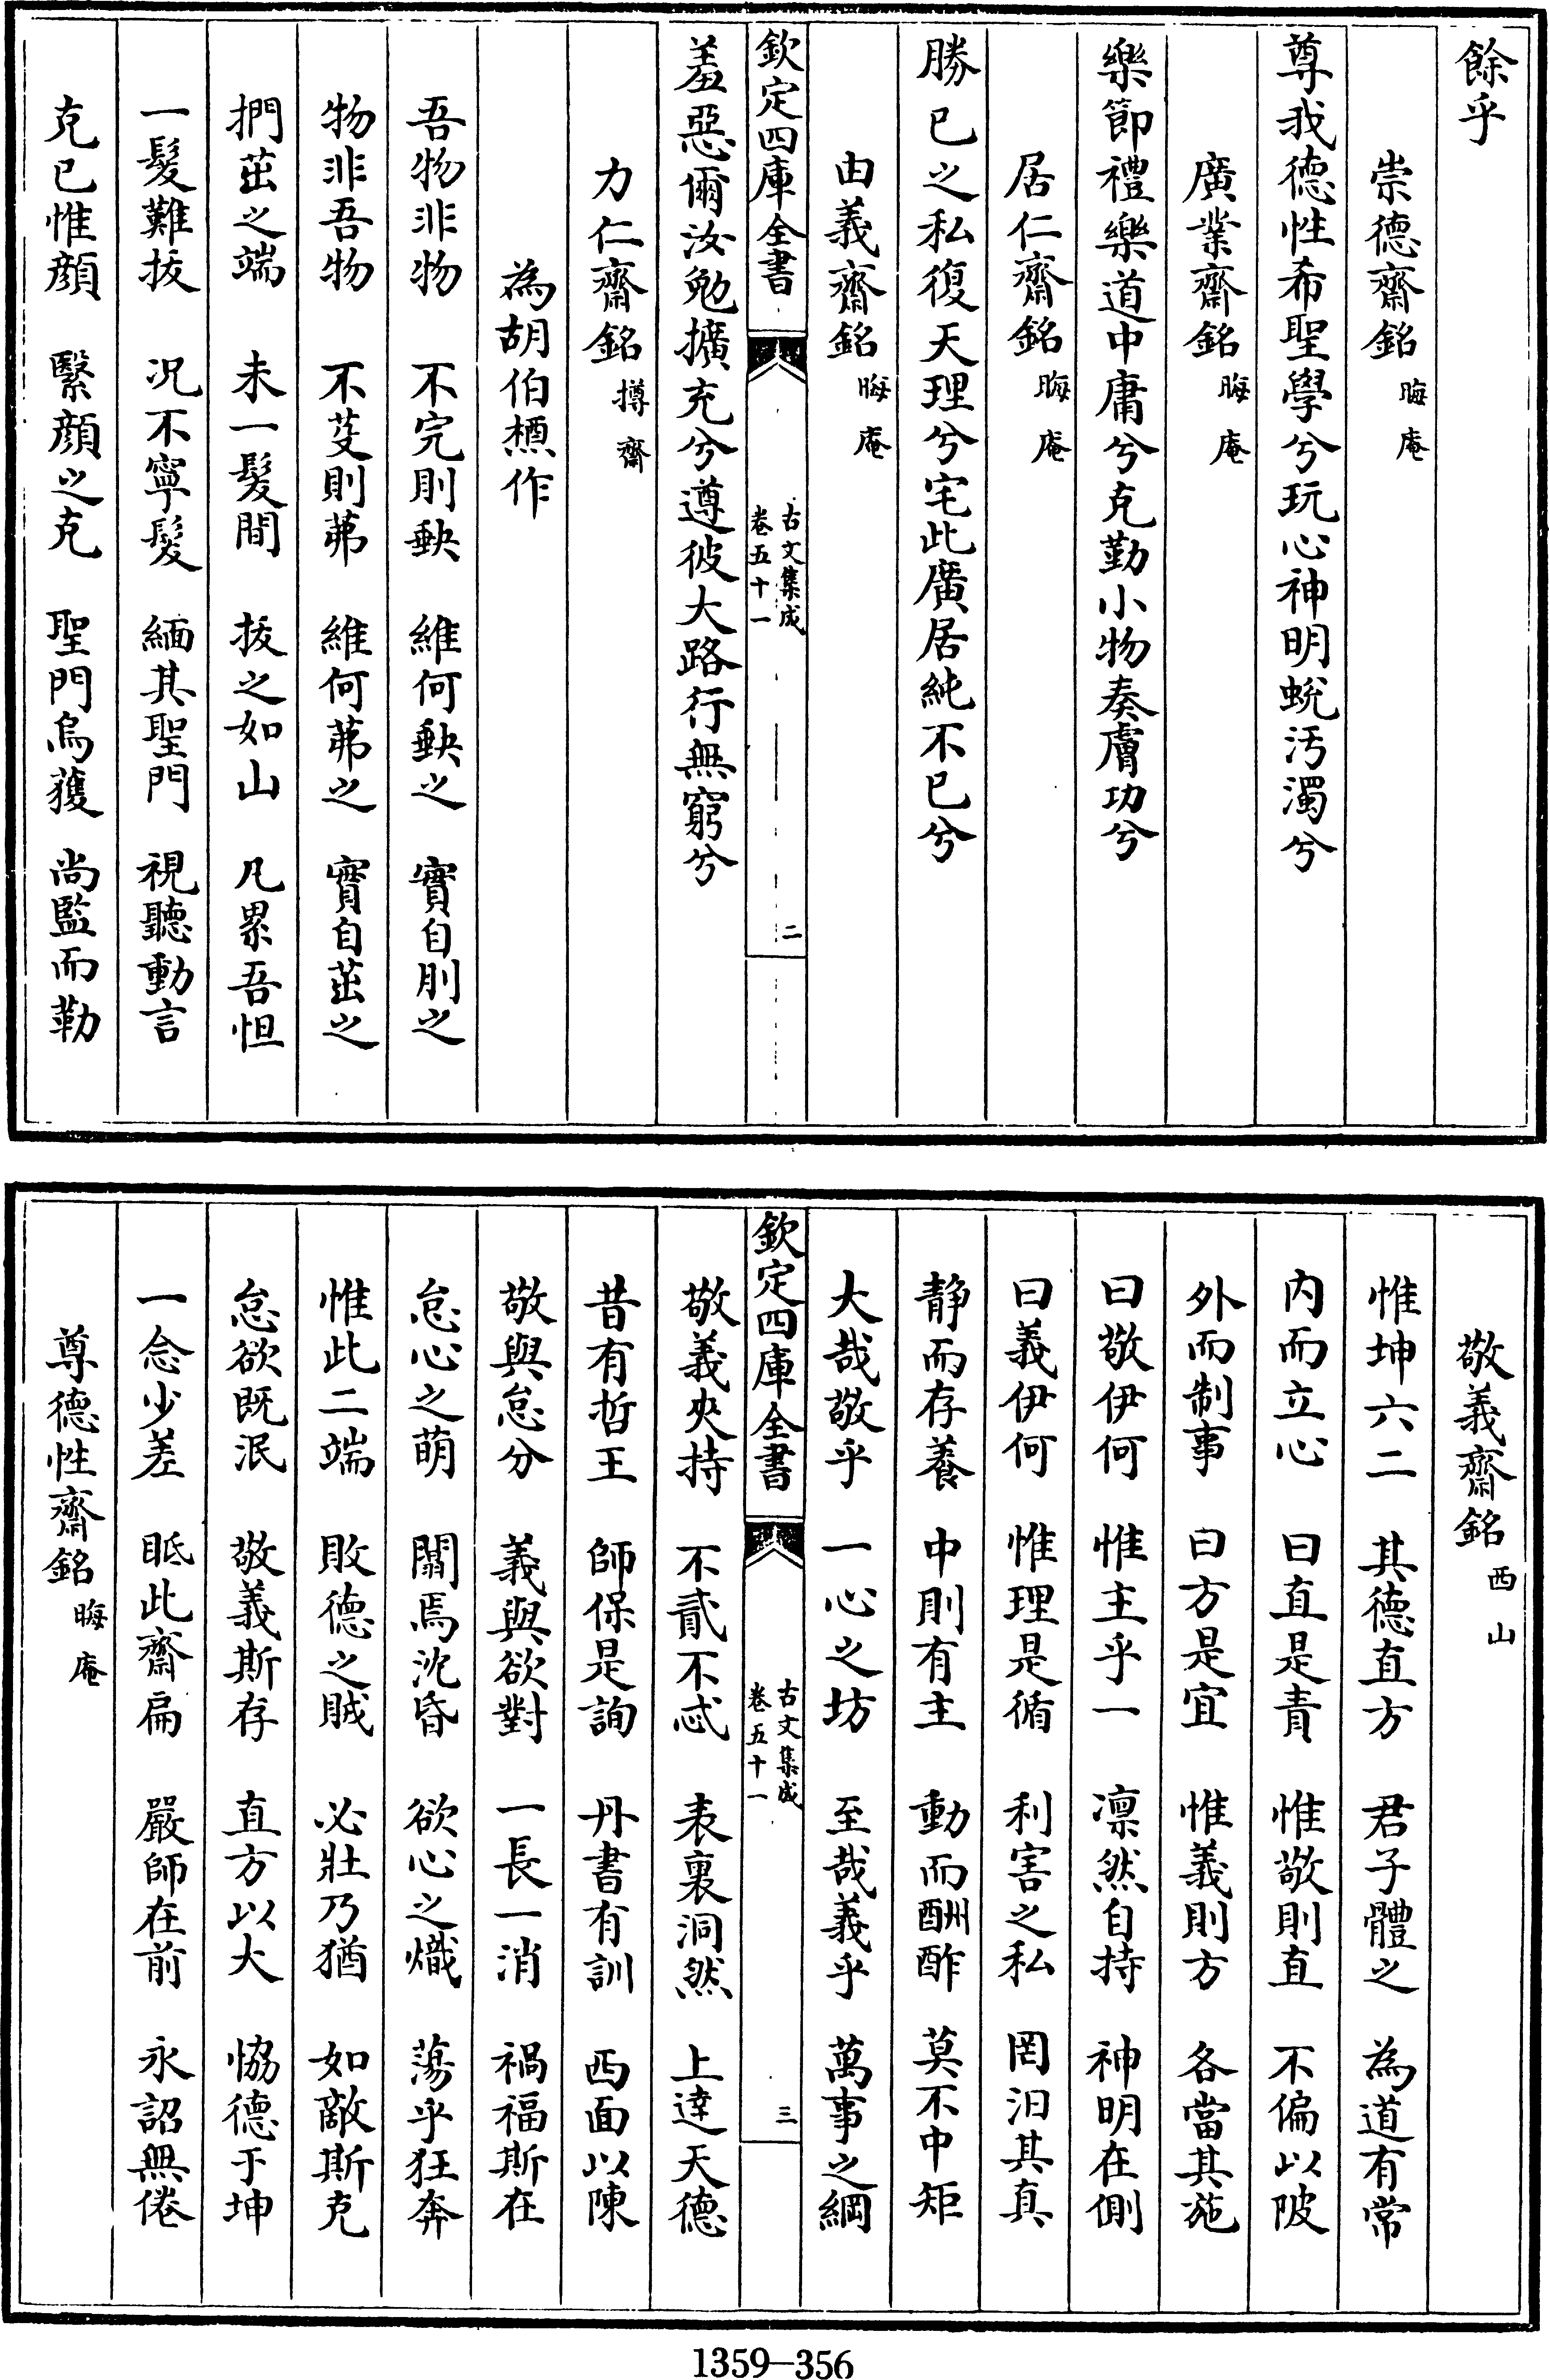 餘乎
崇德齋銘 晦庵
尊我德性希聖學兮玩心神明蛻汚濁兮
廣業齋銘 晦庵
樂節禮樂道中庸兮克勤小物奏膚功兮
居仁齋銘 晦庵
勝已之私復天理兮宅此廣居純不已兮
由義齋銘 晦庵
欽定四庫全書 古文集成 卷五十一 二
羞惡爾汝勉擴充兮遵彼大路行無窮兮
力仁齋銘 摶齋
為胡伯櫄作
吾物非物 不完則缺 維何缺之 實自刖之
物非吾物 不芟則茀 維何茀之 實自茁之
捫茁之端 未一髮間 拔之如山 凡累吾怛
一髮難拔 况不寧髮 緬其聖門 視聽動言
克已惟顔 繄顔之克 聖門烏獲 尚監而勒
敬義齋銘 西山
惟坤六二 其德直方 君子體之 為道有常
内而立心 曰直是責 惟敬則直 不偏以陂
外而制事 曰方是宜 惟義則方 各當其施
曰敬伊何 惟主乎一 凛然自持 神明在側
曰義伊何 惟理是循 利害之私 罔汨其真
静而存養 中則有主 動而酬酢 莫不中矩
大哉敬乎 一心之坊 至哉義乎 萬事之綱
欽定四庫全書 古文集成 卷五十一 三
敬義夾持 不貳不忒 表裏洞然 上達天德
昔有哲王 師保是詢 丹書有訓 西面以陳
敬與怠分 義與欲對 一長一消 禍福斯在
怠心之萌 闒焉沈昏 欲心之熾 蕩乎狂奔
惟此二端 敗德之賊 必壯乃猶 如敵斯克
怠欲既泯 敬義斯存 直方以大 恊德于坤
一念少差 眡此齋扁 嚴師在前 永詔無倦
尊德性齋銘 晦庵
1359-356